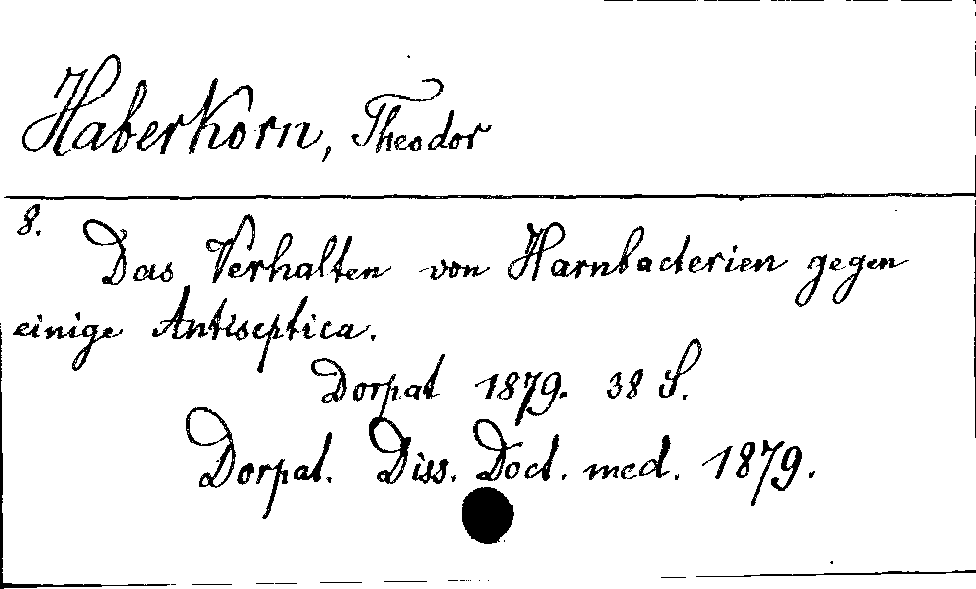 Haberkorn, Theodor
8.
Das Verhalten von Harnbacterien gegen
einige Antiseptica.
Dorpat 1879. 38 S.
Dorpat. Diss. Doct. med. 1879.